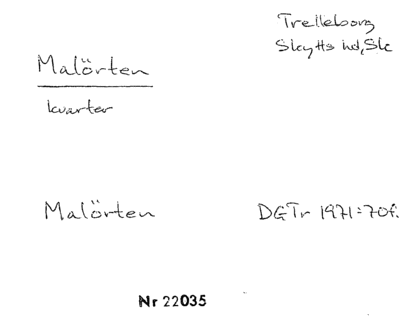 Trelleborg
Skytts hd, Sk
Malörten
kvarter
Malörten
DGTr 1971:70f.
Nr 22035